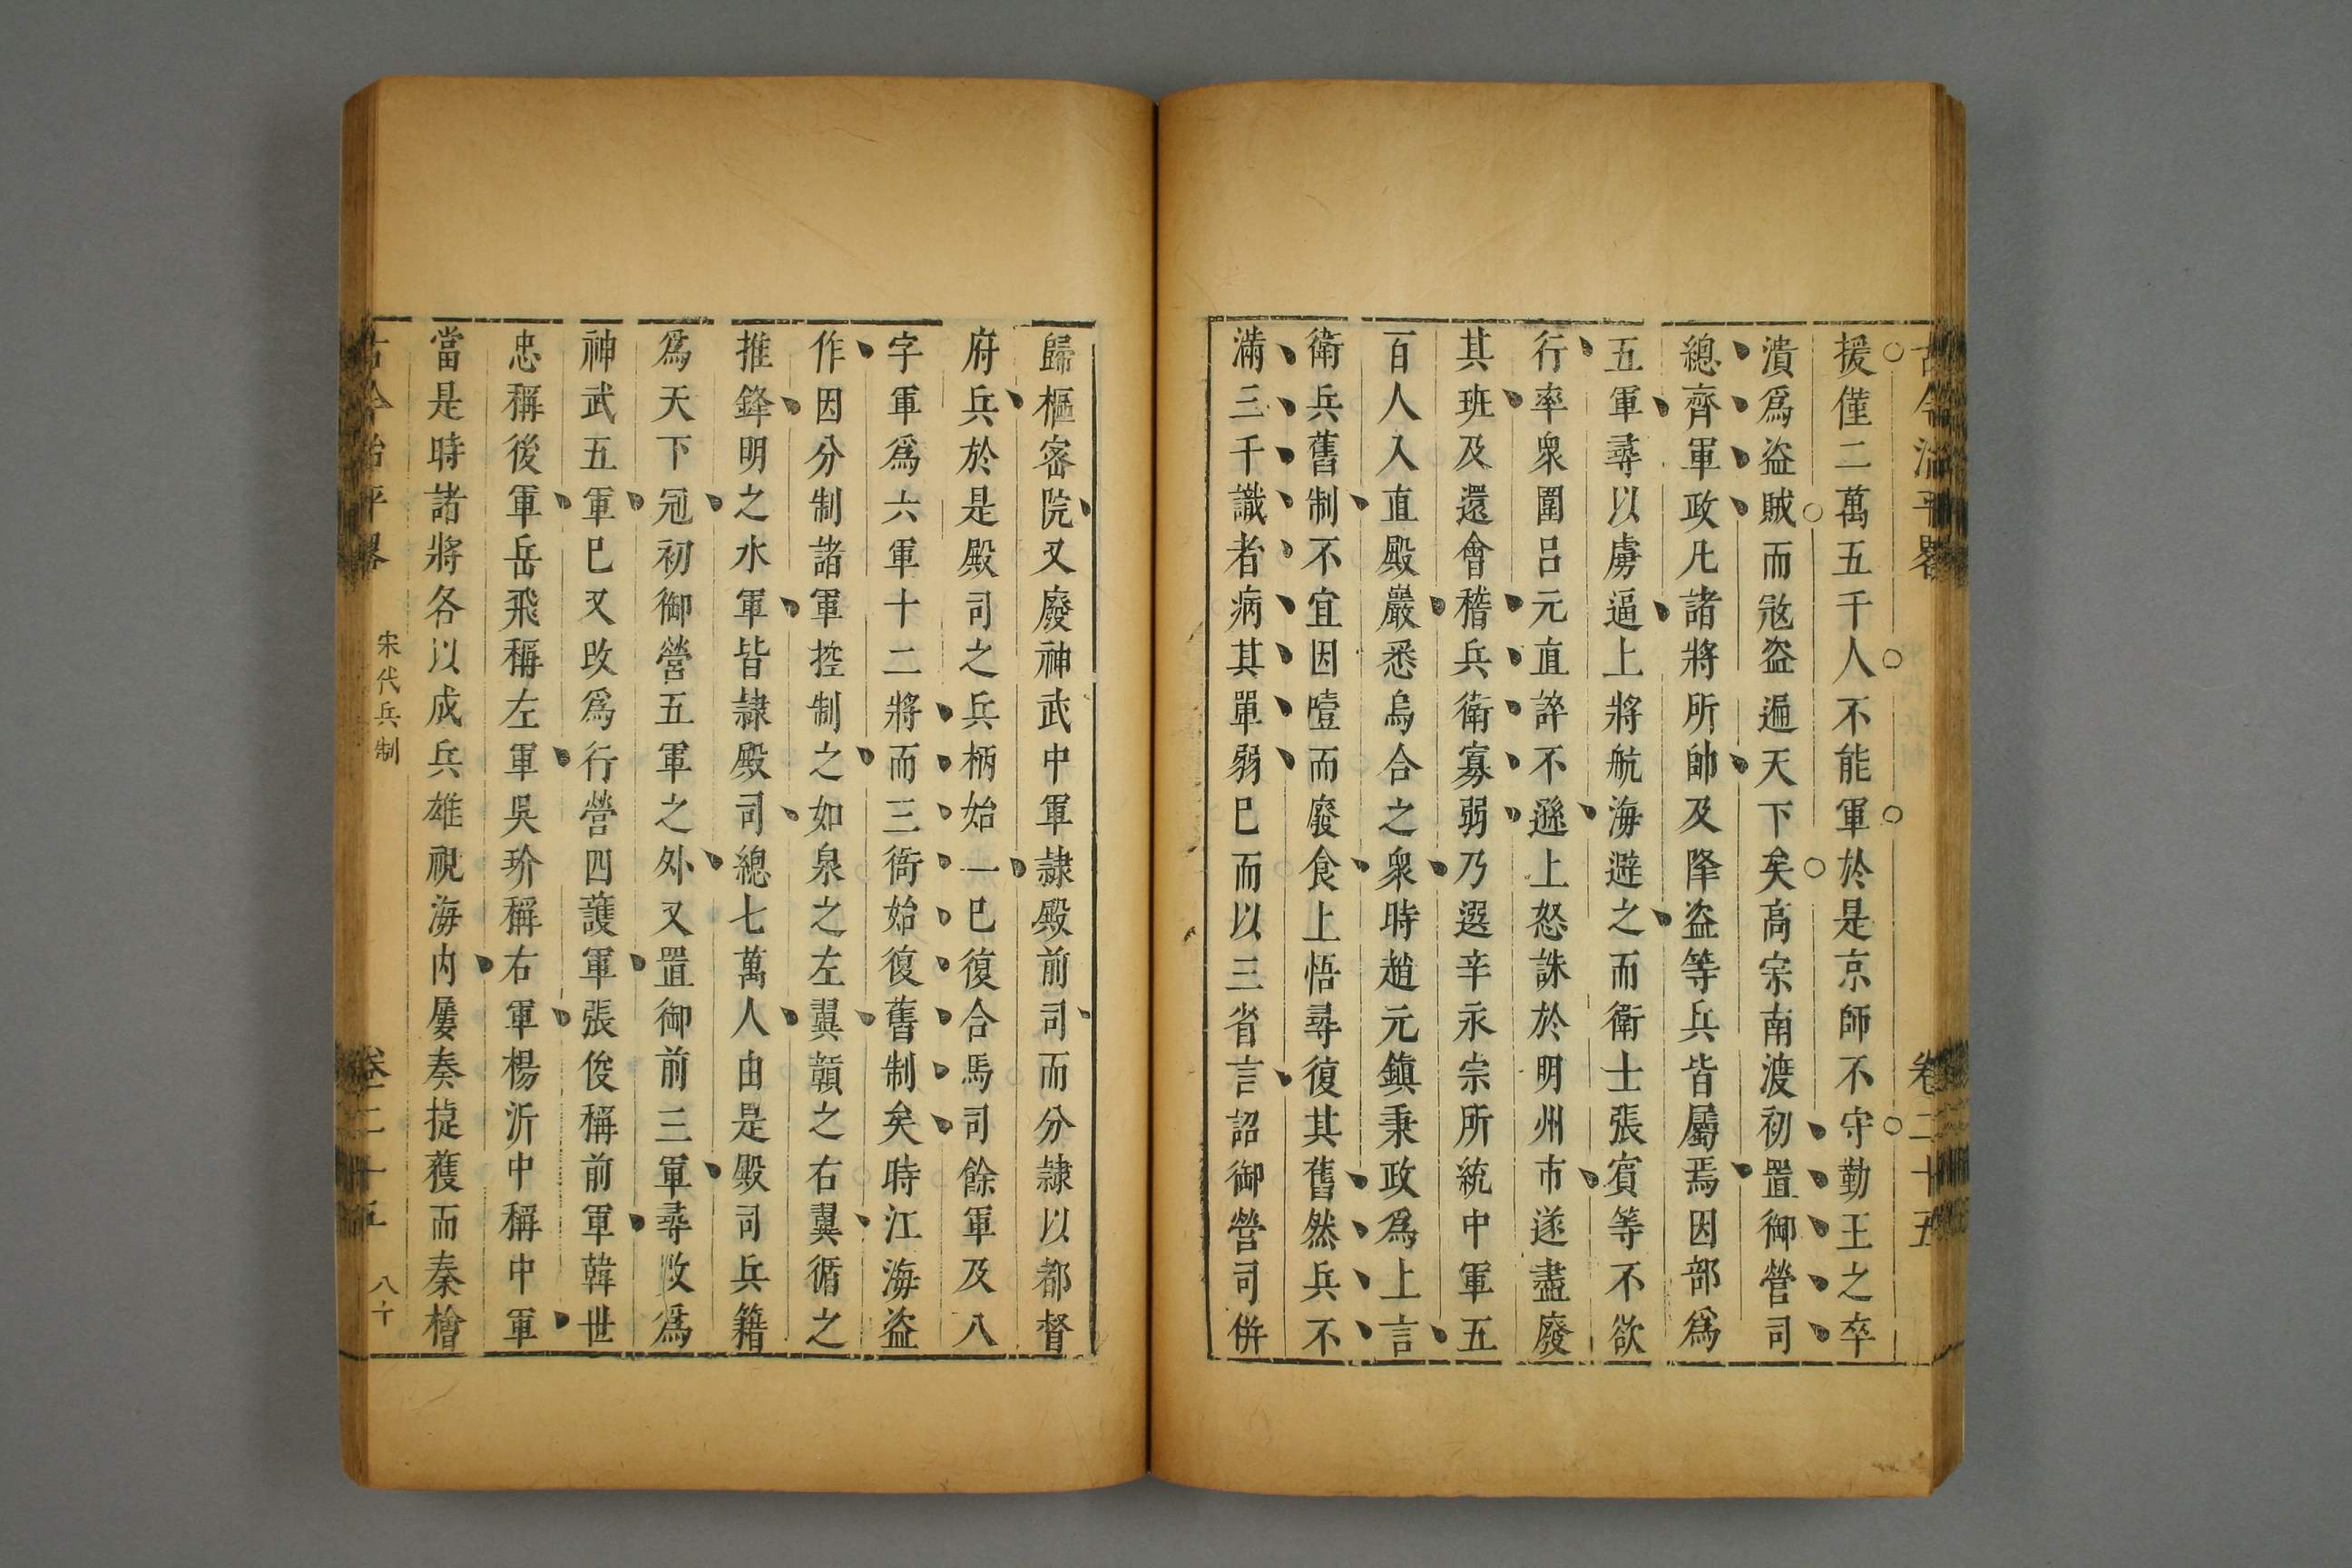 古今治平畧 卷二十五
援僅二萬五千人不能軍於是京師不守勤王之卒
潰爲盗賊而冦盗遍天下矣高宗南渡初置御營司
總齊軍政凡諸將所帥及降盗等兵皆屬焉因部爲
五軍尋以虜逼上將航海避之而衛士張賓等不欲
行率衆圍呂元直誶不遜上怒誅於明州市遂盡廢
其班及還會稽兵衛寡弱乃選辛永宗所統中軍五
百人入直殿嚴悉烏合之衆時趙元鎮秉政爲上言
衛兵舊制不宜因噎而廢食上悟尋復其舊然兵不
滿三千識者病其單弱巳而以三省言詔御營司併
歸樞密院又廢神武中軍隷殿前司而分隷以都督
府兵於是殿司之兵柄始一巳復合馬司餘軍及八
字軍爲六軍十二將而三衙始復舊制矣時江海盗
作因分制諸軍控制之如泉之左翼贑之右翼循之
推鋒明之水軍皆隷殿司總七萬人由是殿司兵籍
爲天下冠初御營五軍之外又置御前三軍尋改爲
神武五軍巳又改爲行營四護軍張俊稱前軍韓世
忠稱後軍岳飛稱左軍吳玠稱右軍楊沂中稱中軍
當是時諸將各以成兵雄視海内屢奏捷獲而秦檜
古今治平畧 宋代兵制 卷二十五 八十